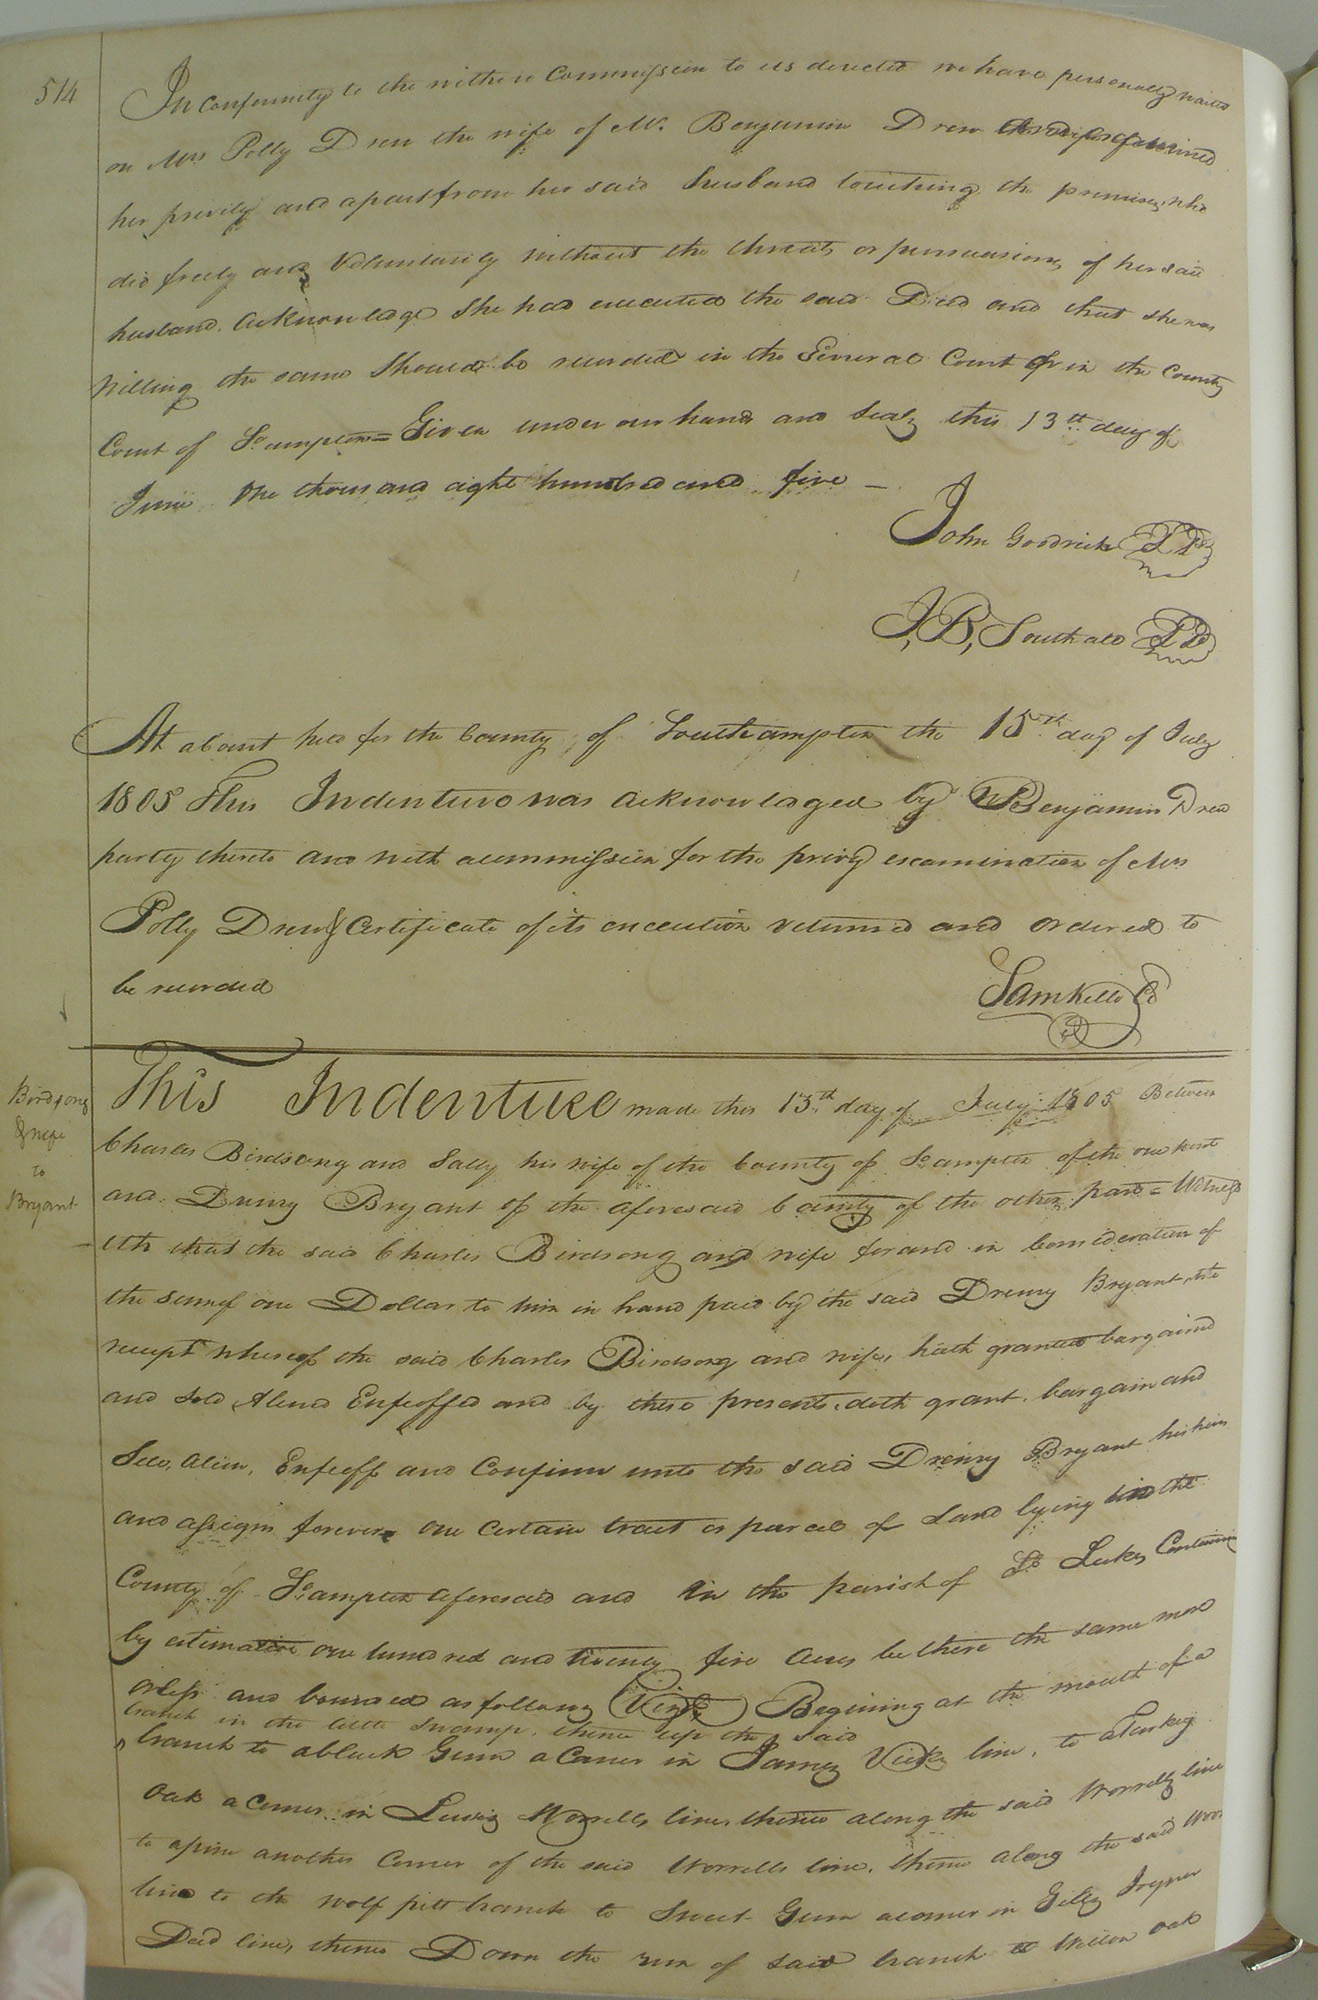 514
In Conformity to the within Commission to us directed we have personally waited
on Mrs Polly Drew the wife of Mr. Benjamin Drew and examined
her privily and apart from her said husband touching the premises, who
did freely and Voluntarily without the threats or persuasions of her said
husband acknowledge She had executed the said Deed and that she was
willing the same Should be recorded in the General Court Or in the County
Court of So.ampton = Given under our hands and seals this 13th day of
June One thousand eight hundred and five —
John Goodrich LS
J, B, Southall LS
At a Court held for the County of Southampton the 15th day of July
1805 This Indenture was acknowledged by Benjamin Drew
party thereto and with a commission for the privy examination of Mrs
Polly Drew & Certificate of its execution returned and ordered to
be recorded
Sam Kello CC
Birdsong
& wife
to
Bryant
This Indenture made this 13th day of July 1805 Between
Charles Birdsong and Sally his wife of the County of So.ampton of the one part
and Drewry Bryant of the aforesaid County of the other part = Witness
eth that the said Charles Birdsong and wife for and in Consideration of
the sum of one Dollar to him in hand paid by the said Drewry Bryant, the
receipt whereof the said Charles Birdsong and wife, hath granted bargained
and sold Aliend Enfeoffed and by these presents doth grant, bargain and
Sell, alien, Enfeoff and Confirm unto the said Drewry Bryant his heirs
and assigns forever One Certain tract or parcel of Land lying in the
County of So.ampton aforesaid and in the parish of St Lukes Containing
by estimation one hundred and twenty five Acres be there the same more
or less and bounded as following (Viz) Begining at the mouth of a
branch in the little swamp, thence up the said
branch to a black Gum a Corner in James Vicks line, to a Turkey
Oak a Corner in Lewis Worrells line, thence along the said Worrells line
to a pine another Corner of the said Worrells line, thence along the said Wor
line to the wolf pitt branch to Sweet Gum a corner in Giles Joyner
Decd line, thence Down the run of said branch to Willow oak